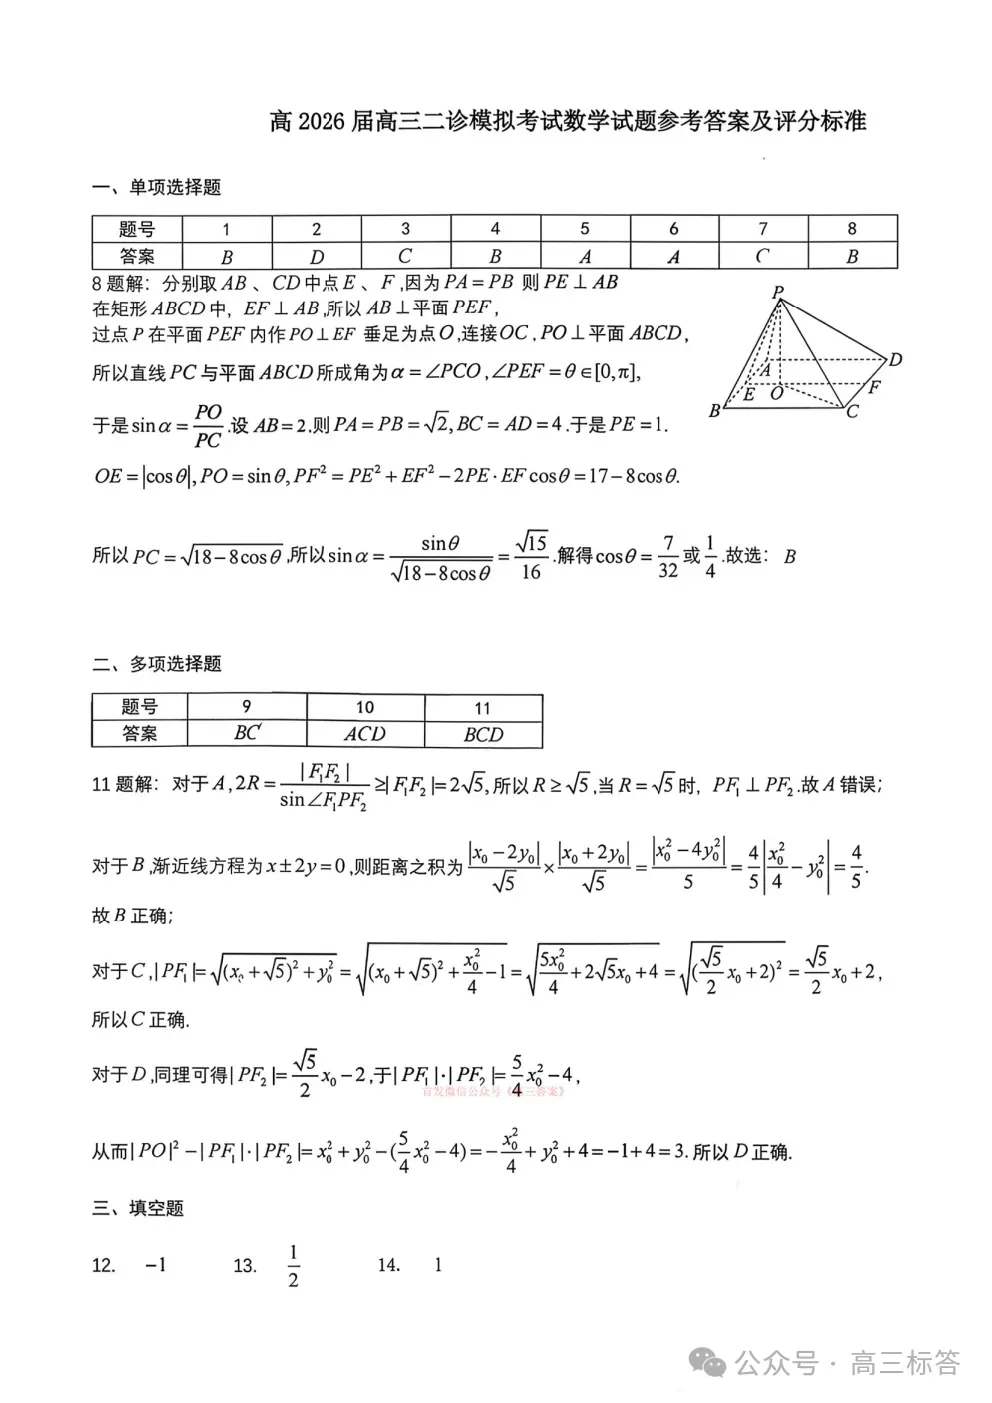 高 2026 届高三二诊模拟考试数学试题参考答案及评分标准
一、单项选择题
题号 1 2 3 4 5 6 7 8
答案 B D C B A A C B
8 题解：分别取 AB 、CD 中点 E 、F ,因为 PA = PB 则 PE ⊥ AB
在矩形 ABCD 中，EF ⊥ AB ,所以 AB ⊥ 平面 PEF ,
过点 P 在平面 PEF 内作 PO ⊥ EF 垂足为点 O ,连接 OC , PO ⊥ 平面 ABCD ,
所以直线 PC 与平面 ABCD 所成角为 α = ∠PCO , ∠PEF = θ ∈ [0, π],
于是 sin α = PO/PC .设 AB = 2 .则 PA = PB = √2, BC = AD = 4 .于是 PE = 1 .
OE = |cos θ|, PO = sin θ, PF² = PE² + EF² − 2PE · EF cos θ = 17 − 8cos θ.
所以 PC = √(18 − 8cos θ) ,所以 sin α = sin θ/√(18 − 8cos θ) = √15/16 .解得 cos θ = 7/32 或 1/4 .故选： B
P
A
D
E
O
F
B
C
二、多项选择题
题号 9 10 11
答案 BC ACD BCD
11 题解：对于 A , 2R = |F₁F₂|/sin∠F₁PF₂ ≥ |F₁F₂| = 2√5, 所以 R ≥ √5 ,当 R = √5 时，PF₁ ⊥ PF₂ .故 A 错误；
对于 B ,渐近线方程为 x ± 2y = 0 ,则距离之积为 |x₀ − 2y₀|/√5 × |x₀ + 2y₀|/√5 = |x₀² − 4y₀²|/5 = 4/5 |x₀²/4 − y₀²| = 4/5 .
故 B 正确；
对于 C , |PF₁| = √((x₀ + √5)² + y₀²) = √((x₀ + √5)² + x₀²/4 − 1) = √(5x₀²/4 + 2√5x₀ + 4) = √((√5/2 x₀ + 2)²) = √5/2 x₀ + 2 ,
所以 C 正确.
对于 D ,同理可得 |PF₂| = √5/2 x₀ − 2 ,于 |PF₁| · |PF₂| = 5/4 x₀² − 4 ,
首发微信公众号《高三答案》
从而 |PO|² − |PF₁| · |PF₂| = x₀² + y₀² − (5/4 x₀² − 4) = − x₀²/4 + y₀² + 4 = −1 + 4 = 3. 所以 D 正确.
三、填空题
12. −1 13. 1/2 14. 1
公众号 · 高三标答